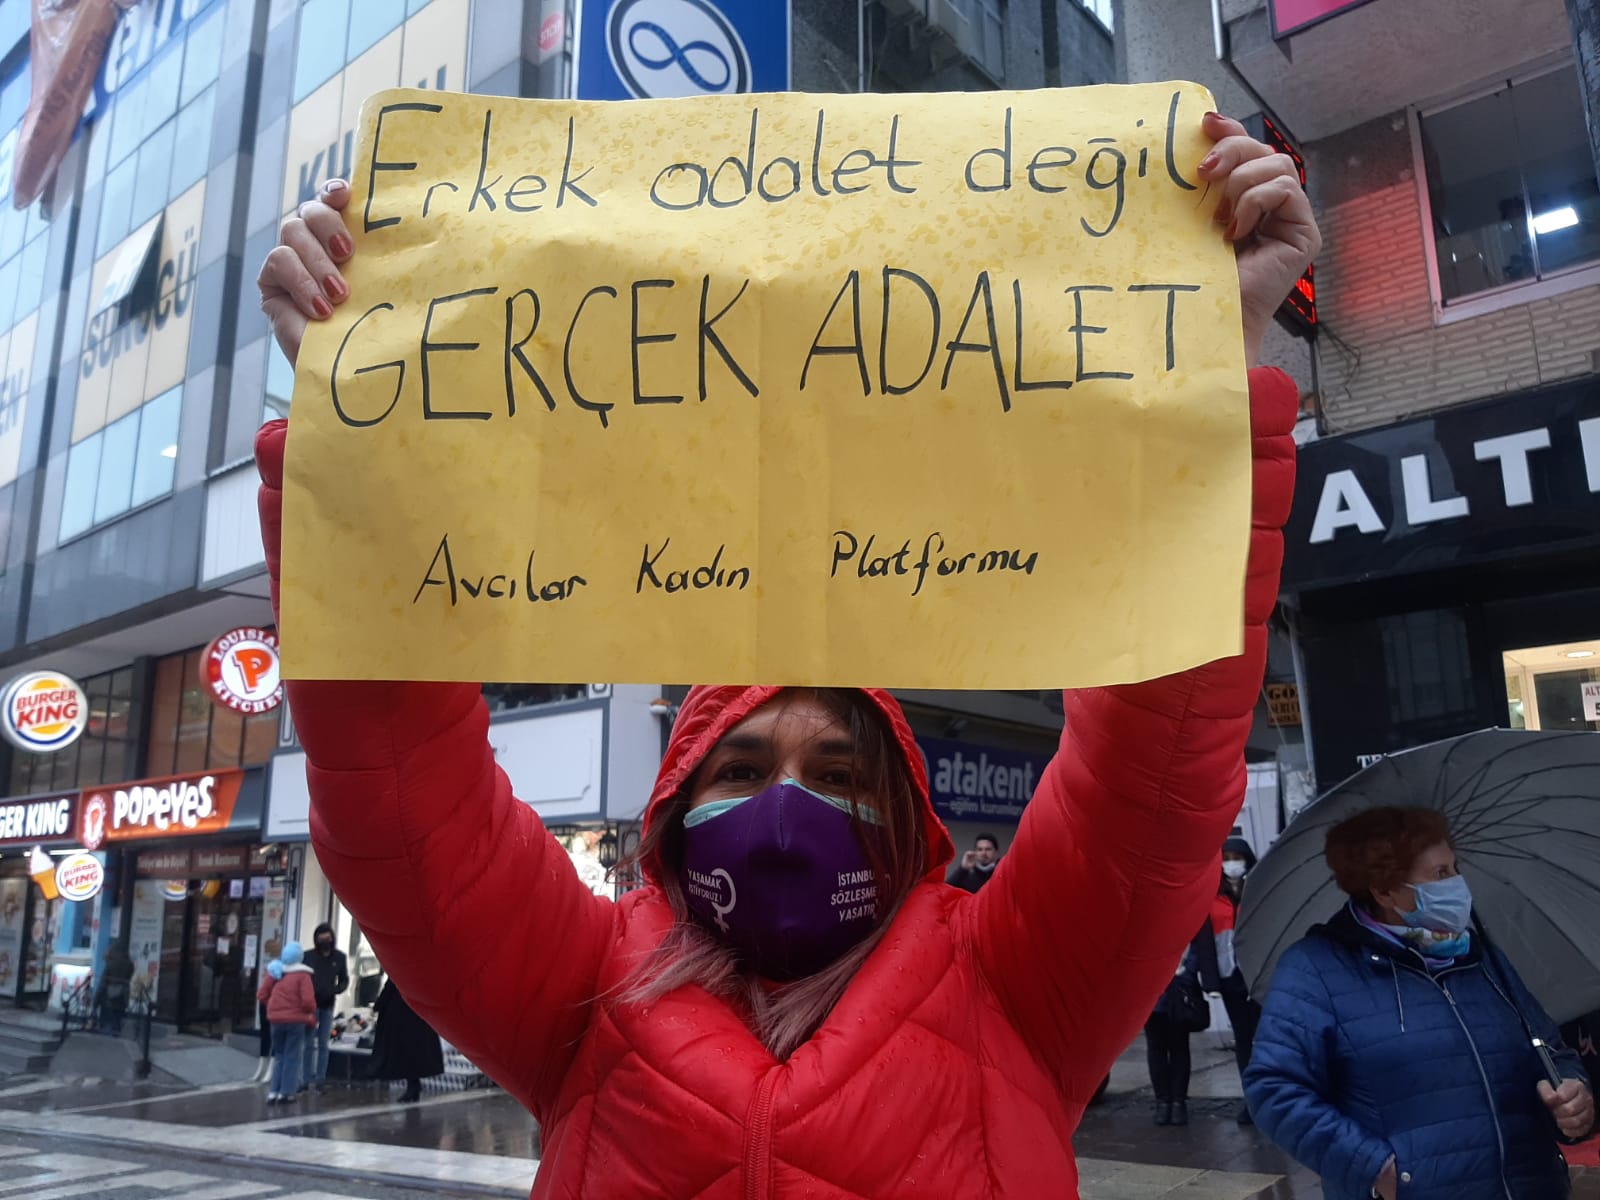 Erkek adalet değil,
GERÇEK ADALET
Avcılar Kadın Platformu
SÜRÜCÜ
BURGER
KING
LOUISIANA
KITCHEN
POPEYES
BURGER
KING
atakent
eğitim kurumları
YAŞAMAK
İSTİYORUZ!
İSTANBUL
SÖZLEŞME
YAŞATIR
ALTI